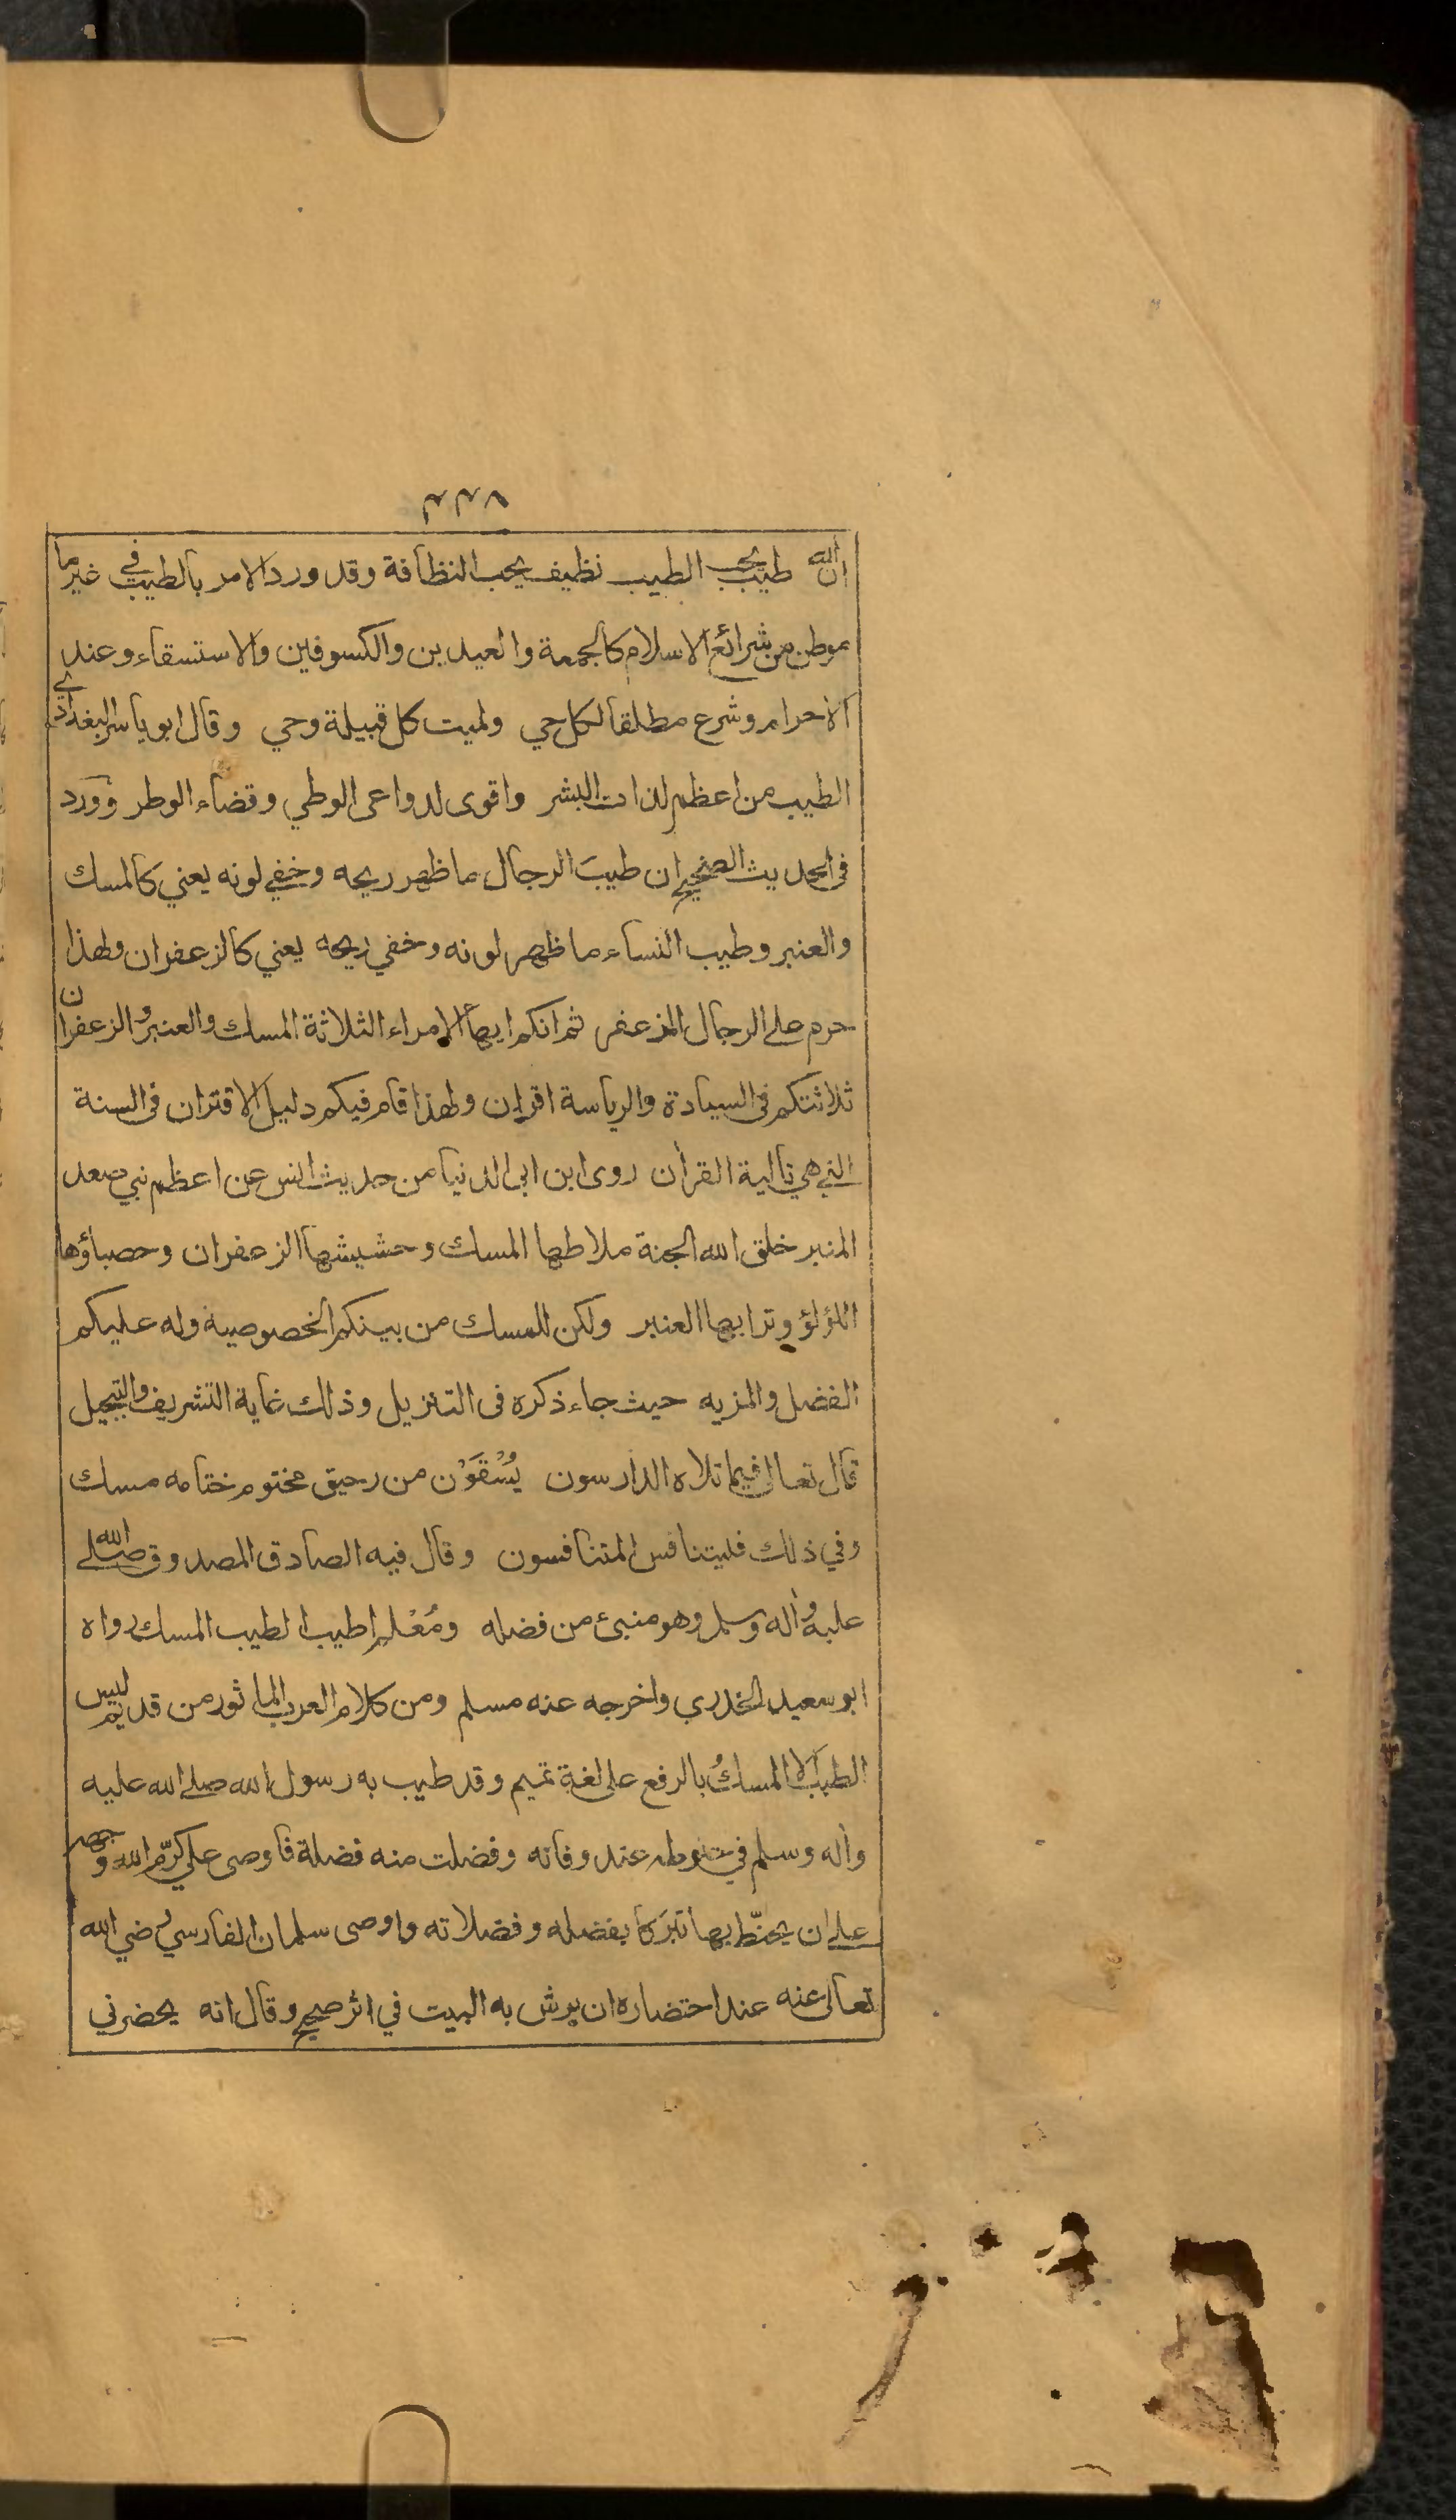 ٨٣٣
ان الله طيب يحب الطيب نظيف يحب النظافة وقد ورد الامر بالطيب في غير ما
موطن من شرائع الاسلام كالجمعة والعيدين والكسوفين والاستسقاء وعند
الاحرام وشرع مطلقا لكل حي ولميت كل قبيلة وحي وقال ابو ياسر البغدادي
الطيب من اعظم لذات البشر واقوى لدواعى الوطي وقضاء الوطر وورد
فى الحديث الصحيح ان طيبَ الرجال ما ظهر ريحه وخفي لونه يعني كالمسك
والعنبر وطيب النساء ما ظهر لونه وخفي ريحه يعني كالزعفران ولهذا
حرم على الرجال المزعفر ثم انكم ايها الامراء الثلاثة المسك والعنبر والزعفران
ثلاثتكم فى السيادة والرياسة اقران ولهذا قام فيكم دليل الاقتران فى السنة
التي هي تالية القرأن روى ابن ابى الدنيا من حديث انس عن اعظم نبي صعد
المنبر خلق الله الجنة ملاطها المسك وحشيشها الزعفران وحصباؤها
اللؤلؤ وترابها العنبر ولكن للمسك من بينكم الخصوصية وله عليكم
الفضل والمزيه حيث جاء ذكره فى التنزيل وذلك غاية التشريف والتبجيل
قال تعالى فيما تلاه الدارسون يُسْقَوْن من رحيق مختوم ختامه مسك
وفي ذلك فليتنافس المتنافسون وقال فيه الصادق المصدوق صلى الله
عليه وأله وسلم وهو منبئ من فضله ومُعْلم اطيب الطيب المسك رواه
ابو سعيد الخدري واخرجه عنه مسلم ومن كلام العرب الماثور من قديم ليس
الطيب الا المسكُ بالرفع على لغة تميم وقد طيب به رسول الله صلى الله عليه
وأله وسلم في حنوطه عند وفاته وفضلت منه فضلة فاوصى علي كرّم الله وجهه
على ان يحنّط بها تبركا بفضله وفضلاته واوصى سلمان الفارسي رضي الله
تعالى عنه عند احتضاره ان يرش به البيت في اثر صحيح وقال انه يحضرني